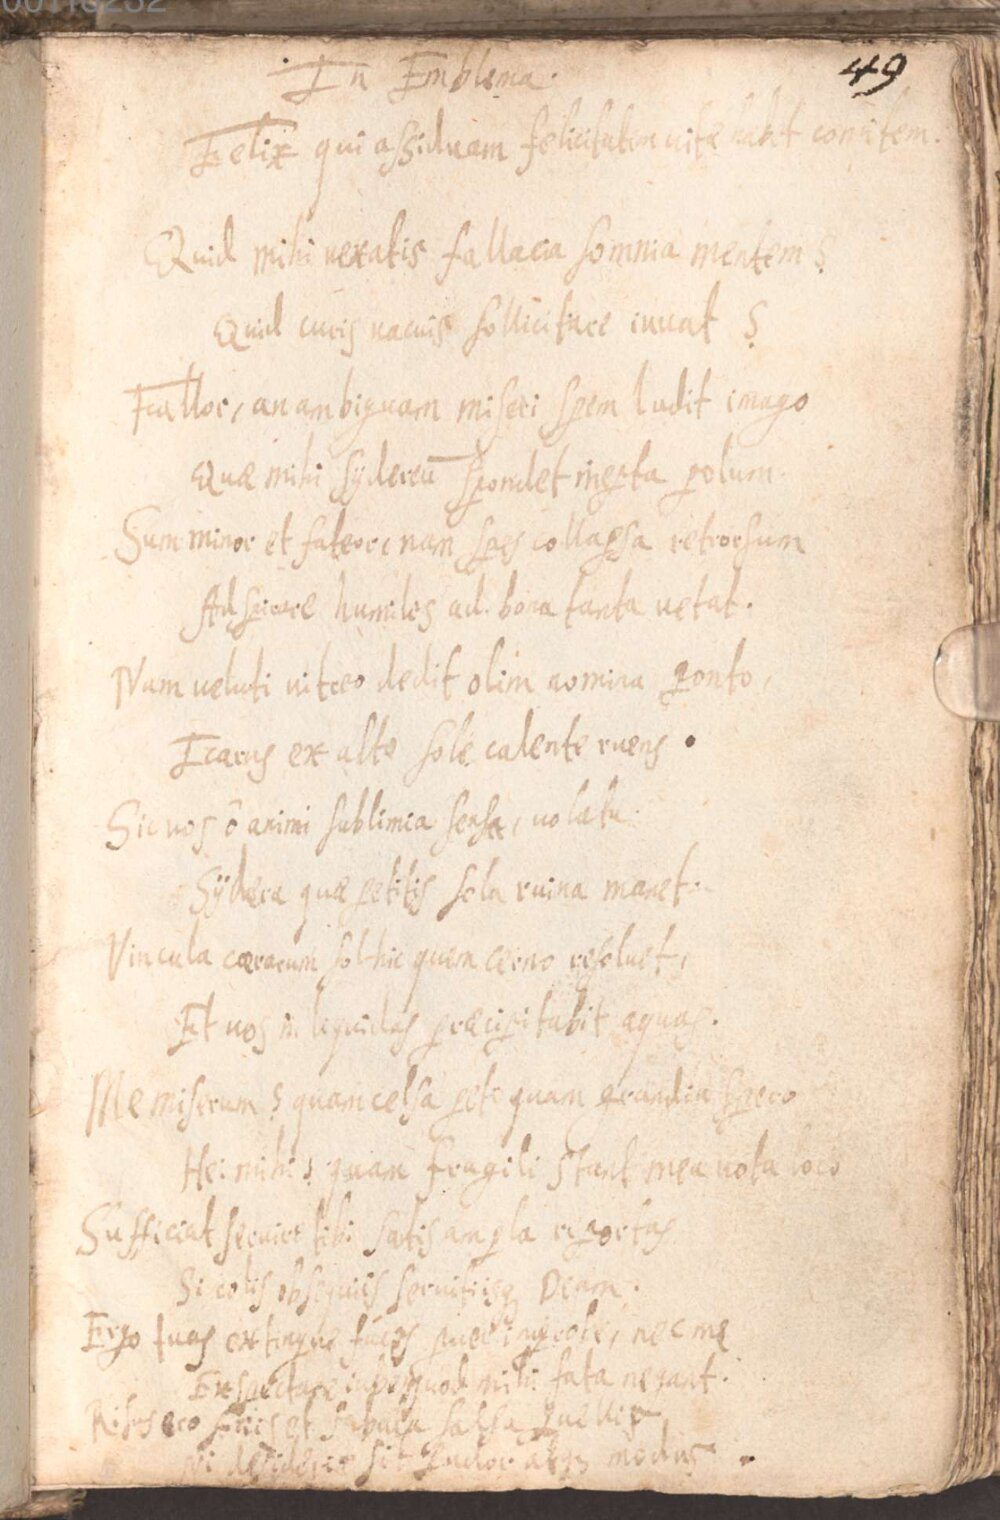 00116232
49
In Emblema.
Felix qui assiduam felicitatem vitæ habet comitem.
Quid mihi uexatis fallacia somnia mentem?
Quid curis uacuis sollicitare iuuat?
Fallor, an ambiguam miseri spem ludit imago
Quæ mihi sydereū spondet inepta polum.
Sum minor et fateor, nam spes collapsa retrorsum
Adspirare humiles ad bona tanta uetat.
Nam ueluti uitreo dedit olim nomina ponto,
Icarus ex alto sole calente ruens.
Sic uos ô animi sublimia sensa, uolatu
Sÿdera quæ petitis sola ruina manet.
Vincula cærarum sol hic quem cerno resoluet,
Et uos in liquidas præcipitabit aquas.
Me miserum? quam celsa peto quam grandia spero
Hei mihi? quam fragili stant mea uota loco
Sufficiat seruire tibi satis ampla reportas
Si colis obsequiis seruitiisq Deam.
Ergo tuas extingue faces puer nec me
Exspectare iube quod mihi fata negant.
Risus ero et fabula salsa puellis
Ni desiderio sit pudor atq modus.